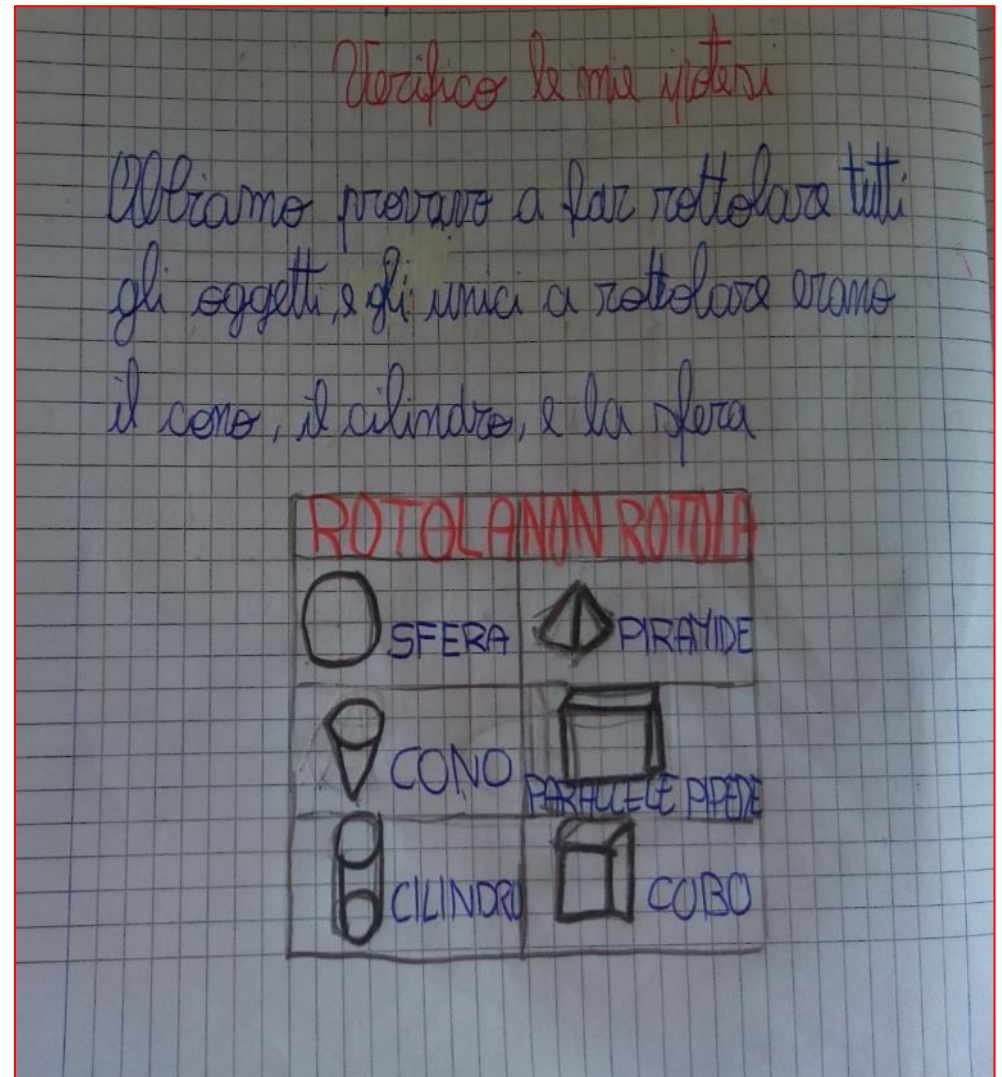 Verifico le mie ipotesi
Abbiamo provavo a far rottolare tutti
gli oggetti, e gli unici a rottolare erano
il cono, il cilindro, e la sfera
ROTOLA NON ROTOLA
SFERA PIRAMIDE
CONO PARALLELE PIPEDE
CILINDRO CUBO